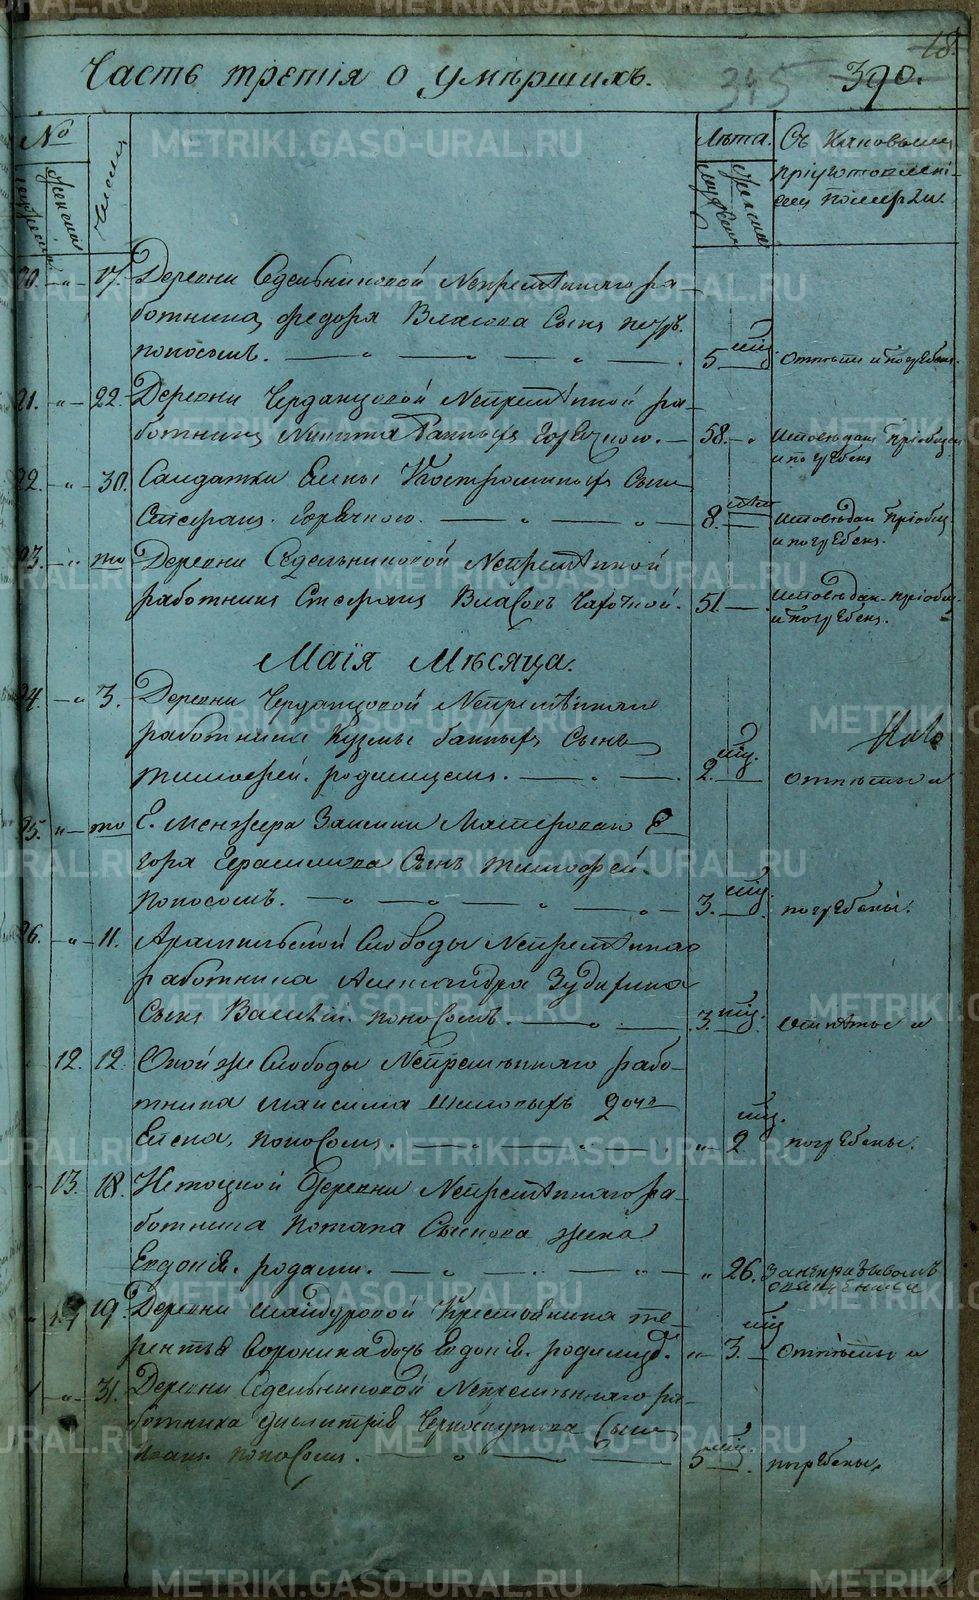 18.
Часть третія о умѣршихъ.
345
390.
№
мужеска
женска
Число
Лѣта.
мужеска
женска
Съ Каковымъ
пріуготовлені-
емъ померли.
20. „ 17. Деревни Седельниковой Непремѣннаго ра-
ботника, федора Власова Сынъ петръ.
поносомъ. 5 мц. отпѣты и погребены.
21. „ 22. Деревни Черданцовой Непремѣнной ра-
ботникъ Никита Банныхъ Горячкою. 58. „ исповѣданъ пріобщенъ
и погребенъ
22. „ 30. Салдатки Елены Костроминыхъ Сынъ
Стефанъ. Горячкою. 8. лѣт исповѣдан пріобщ.
и погребенъ.
23. „ то Деревни Седельниковой Непремѣнной
работникъ Стефанъ Власовъ Чахоткой. 51. исповѣдан. пріобщ.
и погребенъ.
Маія Мѣсяца.
24. „ 3. Деревни Черданцовой Непремѣннаго
работника Кузмы Банныхъ Сынъ
тимофей. родимцемъ. 2. мц. отпѣты и
25. „ то Г. Менжера Заимки Мастероваго Е
гора Герасимова Сынъ тимофей.
поносомъ. 3. мц. погребены.
26. „ 11. Арамильской Слободы Непремѣннаго
работника Александра Зудихина
Сынъ Василій. поносомъ. 3. мц. отпѣты и
12. 12. Оной же Слободы Непремѣннаго рабо-
тника Максима Шиловыхъ дочь
Елена, поносомъ. „ 2 мц. погребены.
13. 18. Нетоцкой деревни Непремѣннаго ра-
ботника Потапа Сынкова жена
Евдокія. родами. „ 26.
14 19. Деревни Шайдуровой Крестьянина те-
рентья Воронина дочь Евдокія. родимцѣ. „ 3. мц отпѣты и
„ 31. Деревни Седельниковой Непремѣннаго ра-
ботника димитрія Черноскутова Сынъ
Иванъ. поносомъ. 5 мц. погребены.
METRIKI.GASO-URAL.RU